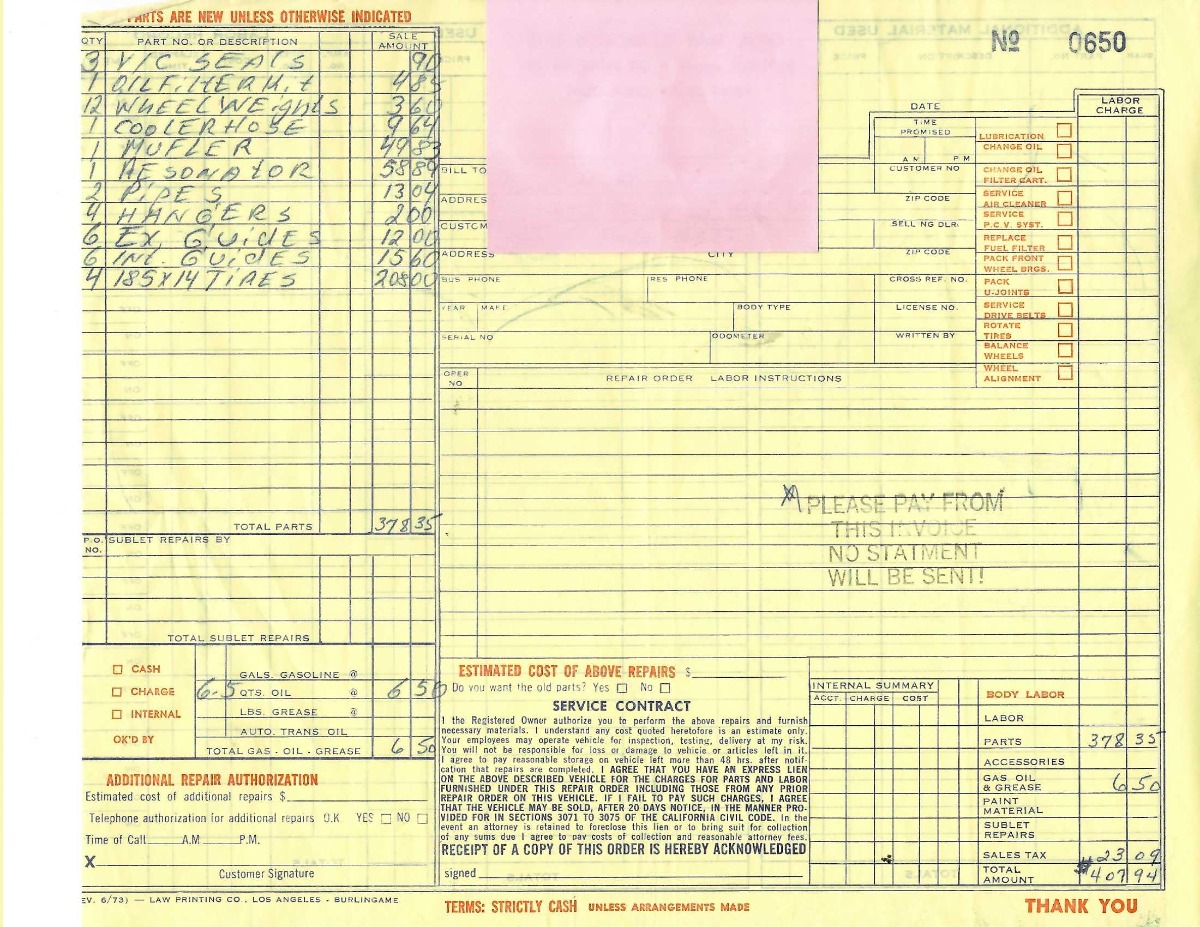 PARTS ARE NEW UNLESS OTHERWISE INDICATED
QTY PART NO. OR DESCRIPTION SALE AMOUNT
3 V/C SEALS 90
1 OILFILTERKit 4 85
12 WHEELWEights 3 60
1 COOLERHOSE 9 64
1 MUFLER 49 83
1 RESONATOR 58 89
2 PIPES 13 04
4 HANGERS 2 00
6 EX, GUIDES 12 00
6 INt. GUIDES 15 60
4 185X14 TIRES 208 00
TOTAL PARTS 378 35
P.O. NO. SUBLET REPAIRS BY
TOTAL SUBLET REPAIRS
CASH
CHARGE
INTERNAL
OK'D BY
GALS. GASOLINE @
6.5 QTS. OIL @ 6 50
LBS. GREASE @
AUTO. TRANS OIL
TOTAL GAS - OIL - GREASE 6 50
ADDITIONAL REPAIR AUTHORIZATION
Estimated cost of additional repairs $
Telephone authorization for additional repairs O.K YES NO
Time of Call A.M P.M.
X
Customer Signature
EV. 6/73) — LAW PRINTING CO., LOS ANGELES - BURLINGAME
Nº 0650
DATE
LABOR CHARGE
TIME PROMISED
A M P M
BILL TO
CUSTOMER NO
ADDRES
ZIP CODE
CUSTOM
SELL NG DLR.
ADDRESS CITY ZIP CODE
BUS PHONE RES PHONE CROSS REF. NO.
YEAR MAKE BODY TYPE LICENSE NO.
SERIAL NO ODOMETER WRITTEN BY
LUBRICATION
CHANGE OIL
CHANGE OIL FILTER CART.
SERVICE AIR CLEANER
SERVICE P.C.V. SYST.
REPLACE FUEL FILTER
PACK FRONT WHEEL BRGS.
PACK U-JOINTS
SERVICE DRIVE BELTS
ROTATE TIRES
BALANCE WHEELS
WHEEL ALIGNMENT
OPER NO REPAIR ORDER LABOR INSTRUCTIONS
PLEASE PAY FROM
THIS INVOICE
NO STATMENT
WILL BE SENT!
ESTIMATED COST OF ABOVE REPAIRS $
Do you want the old parts? Yes No
SERVICE CONTRACT
I the Registered Owner authorize you to perform the above repairs and furnish
necessary materials. I understand any cost quoted heretofore is an estimate only.
Your employees may operate vehicle for inspection, testing, delivery at my risk.
You will not be responsible for loss or damage to vehicle or articles left in it.
I agree to pay reasonable storage on vehicle left more than 48 hrs. after notif-
cation that repairs are completed. I AGREE THAT YOU HAVE AN EXPRESS LIEN
ON THE ABOVE DESCRIBED VEHICLE FOR THE CHARGES FOR PARTS AND LABOR
FURNISHED UNDER THIS REPAIR ORDER INCLUDING THOSE FROM ANY PRIOR
REPAIR ORDER ON THIS VEHICLE. IF I FAIL TO PAY SUCH CHARGES, I AGREE
THAT THE VEHICLE MAY BE SOLD, AFTER 20 DAYS NOTICE, IN THE MANNER PRO-
VIDED FOR IN SECTIONS 3071 TO 3075 OF THE CALIFORNIA CIVIL CODE. In the
event an attorney is retained to foreclose this lien or to bring suit for collection
of any sums due I agree to pay costs of collection and reasonable attorney fees.
RECEIPT OF A COPY OF THIS ORDER IS HEREBY ACKNOWLEDGED
signed
TERMS: STRICTLY CASH UNLESS ARRANGEMENTS MADE
INTERNAL SUMMARY
ACCT. CHARGE COST
BODY LABOR
LABOR
PARTS 378 35
ACCESSORIES
GAS OIL & GREASE 6 50
PAINT MATERIAL
SUBLET REPAIRS
SALES TAX 23 09
TOTAL AMOUNT $407 94
THANK YOU